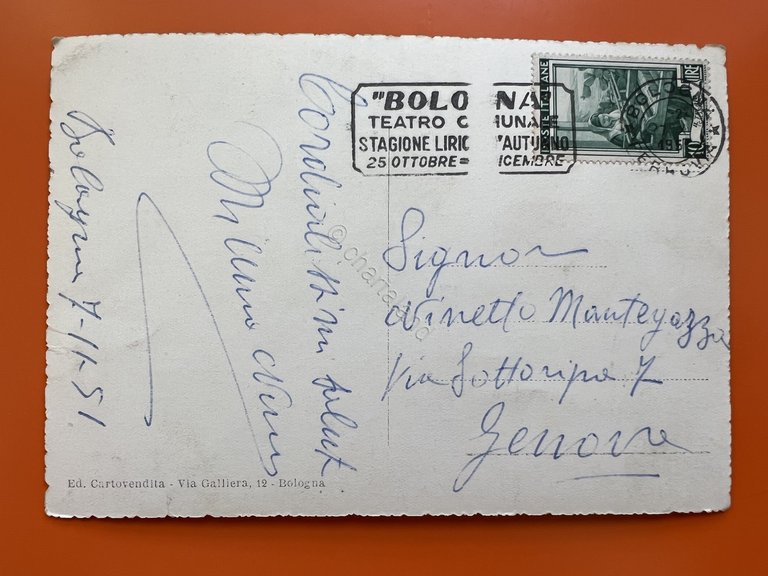 Bologna 7-11-51
Cordialissimi saluti
Ed. Cartovendita - Via Galliera, 12 - Bologna
"BOLO NA
TEATRO C UNALE
STAGIONE LIRIC 'AUTUNNO
25 OTTOBRE = ICEMBRE
POSTE ITALIANE
LIRE
10
Signor
Ninetto Mantegazza
Via Sottoripa 7
Genova